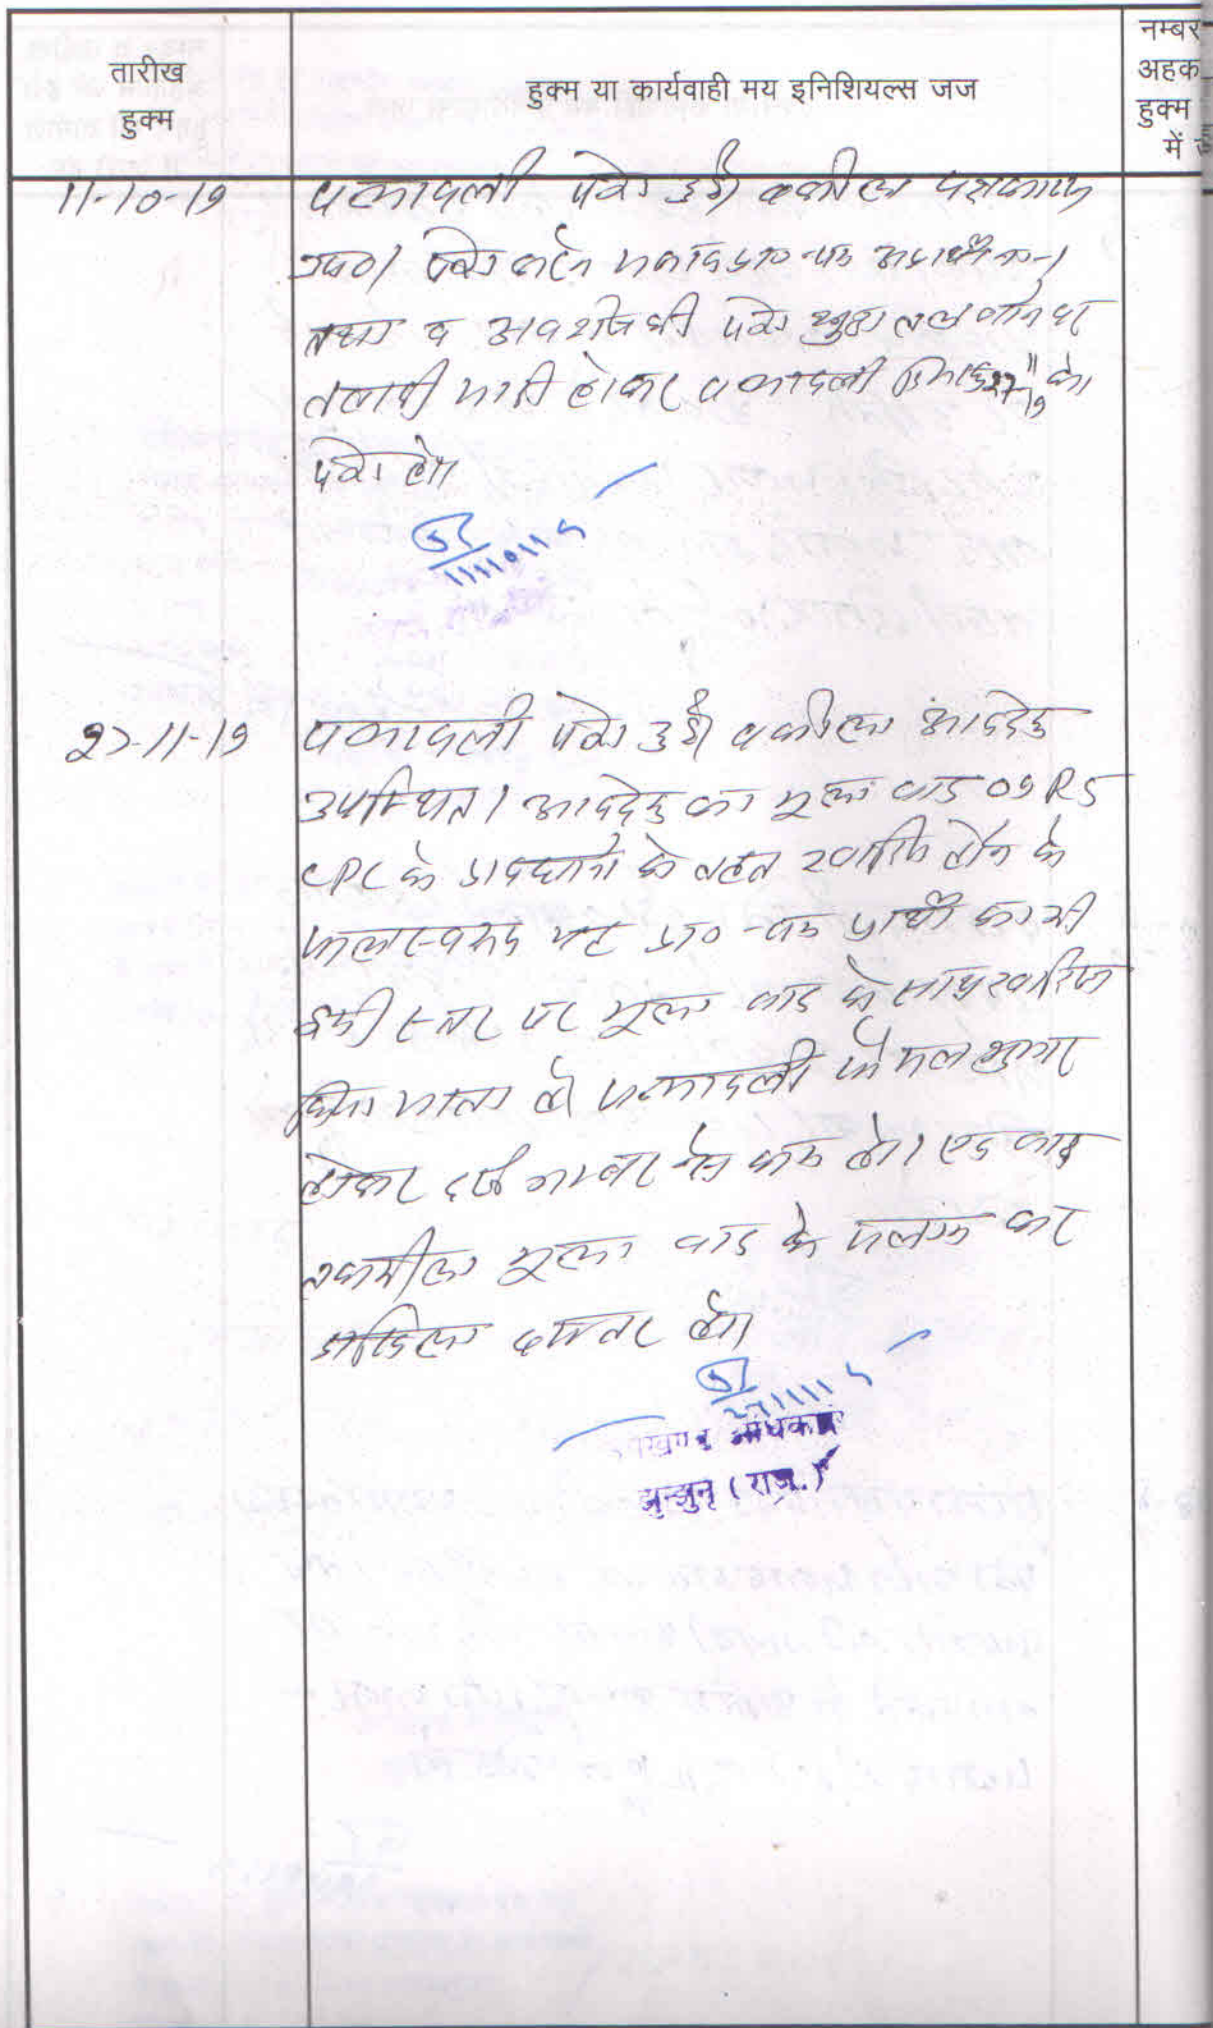 तारीख
हुक्म
हुक्म या कार्यवाही मय इनिशियल्स जज
नम्बर
अहक
हुक्म
में
11-10-19 पत्रावली पेश हुई। वकील पक्षकारान
उप०। पेश जवाब प्रा०-पत्र अप्रार्थी नं०-1
तथा व पेश पर
तलबी जारी होकर पत्रावली दिनांक 27-11-19 को
पेश हो।
11/10/19
27-11-19 पत्रावली पेश हुई। वकील
उपस्थित। का मूल वाद O9 R5
CPC के प्रावधानों के तहत खारिज होने के
फलस्वरूप यह प्रा०-पत्र प्रार्थी का भी
इसी स्तर पर मूल वाद के साथ खारिज
किया जाता है। पत्रावली फैसल शुमार
होकर दर्ज नम्बर से कम हो। बाद
तकमील मूल वाद के संलग्न कर
दाखिल दफ्तर हो।
27/11/19
उपखण्ड अधिकारी
झुन्झुनू (राज.)